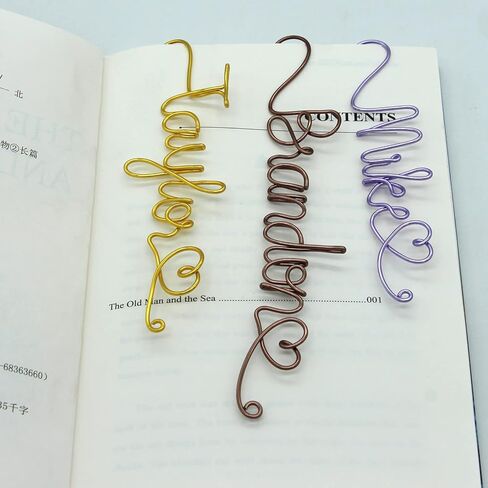 北
物②长篇
-68363660)
35千字
Taylor
Brandon
Mike
CONTENTS
The Old Man and the Sea ........................................001